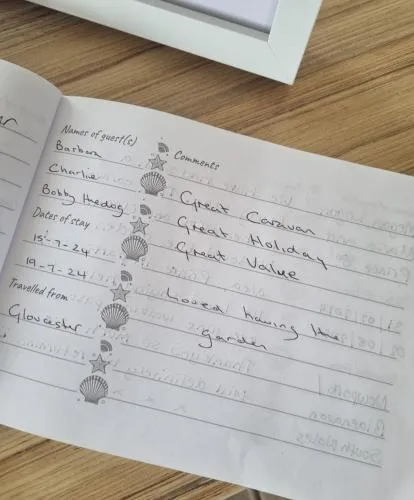 Names of guest(s)
Barbara
Charlie
Bobby the dog
Dates of stay
15-7-24
19-7-24
Travelled from
Gloucester
Comments
Great Caravan
Great Holiday
Great Value
Loved having the
garden